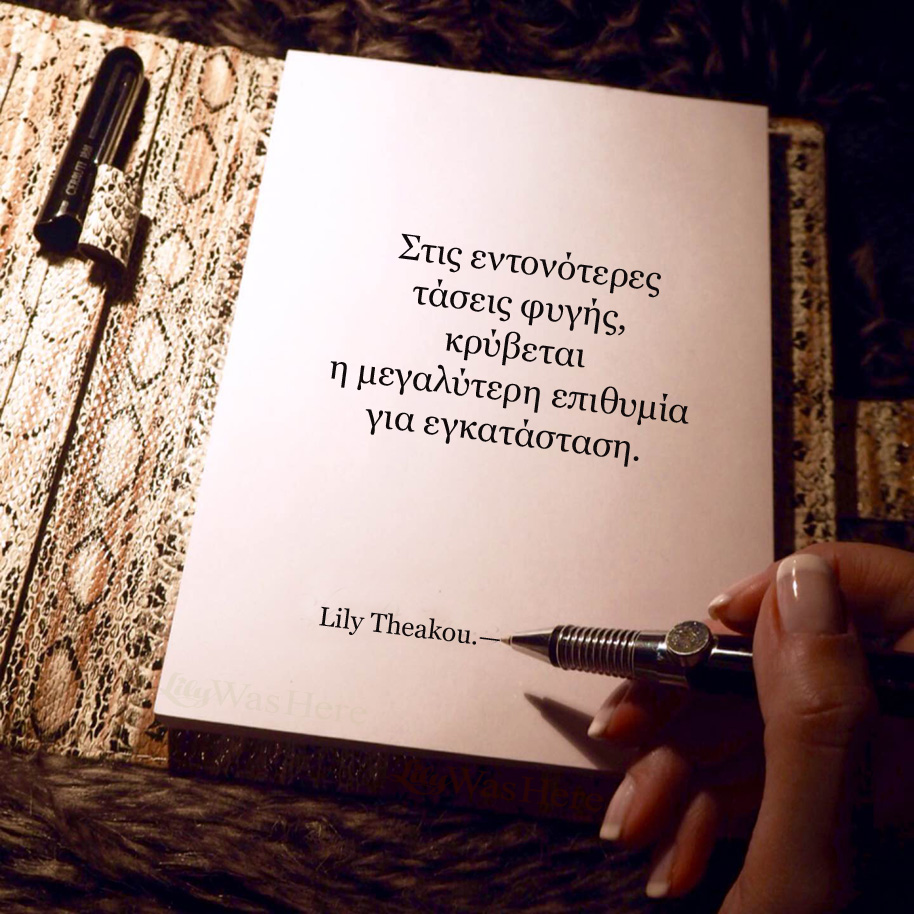 Στις εντονότερες
τάσεις φυγής,
κρύβεται
η μεγαλύτερη επιθυμία
για εγκατάσταση.
Lily Theakou.—
LilyWasHere
LilyWasHere